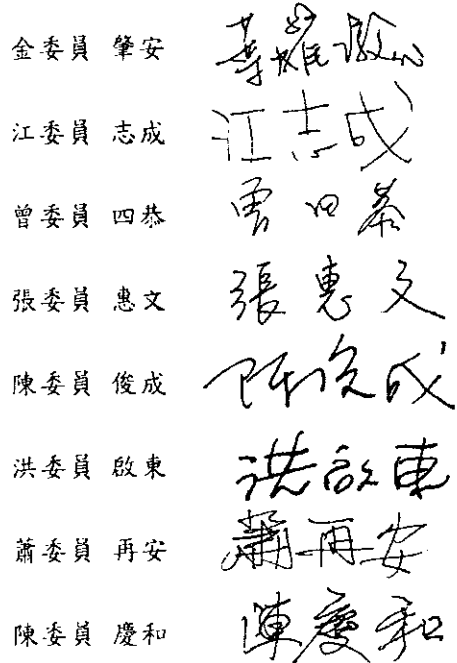 金委員 肇安 葉雄
江委員 志成 江志成
曾委員 四恭 曾四恭
張委員 惠文 張惠文
陳委員 俊成 陳俊成
洪委員 啟東 洪啟東
蕭委員 再安 蕭再安
陳委員 慶和 陳慶和